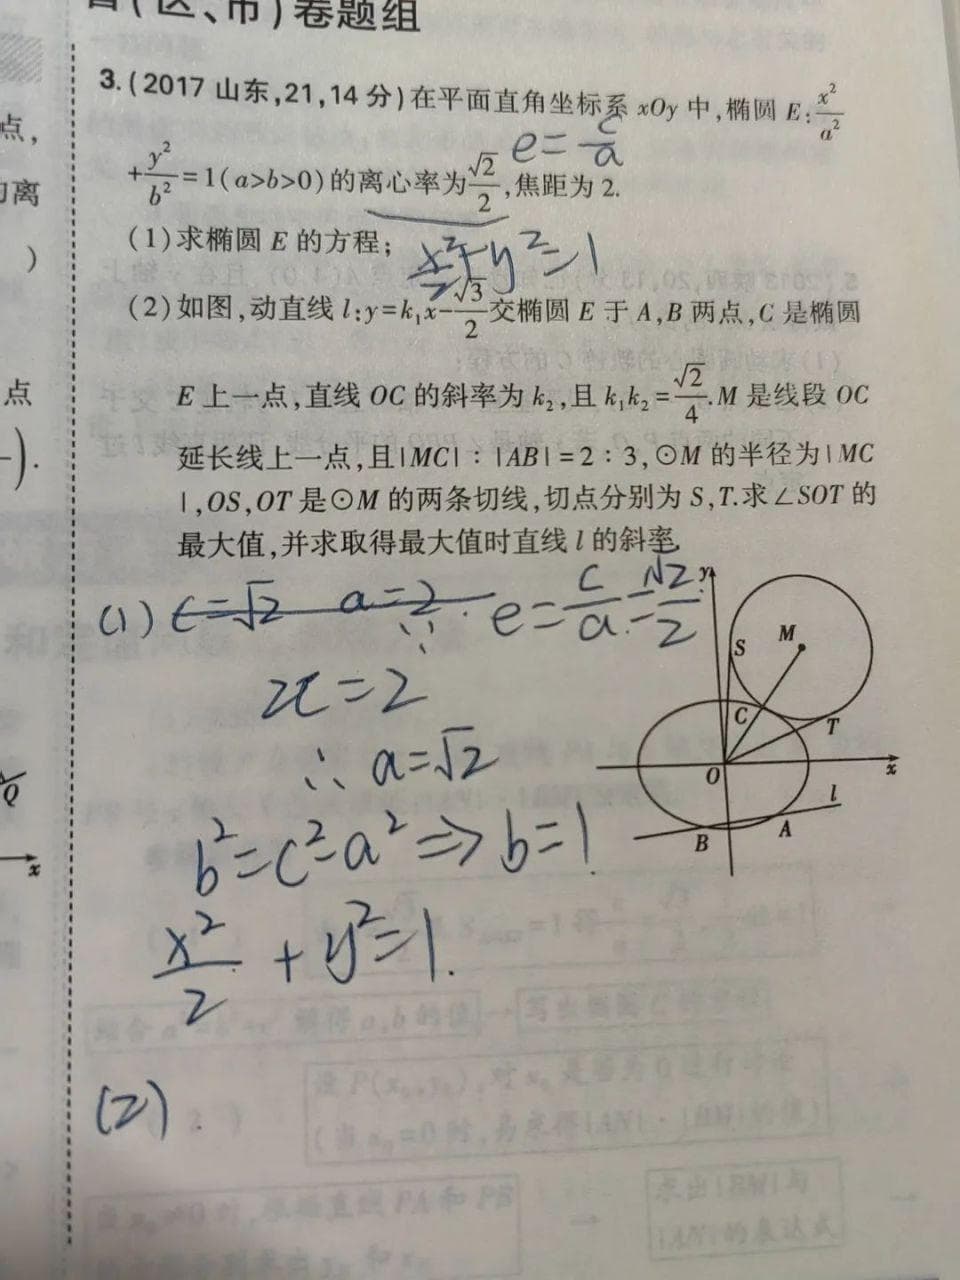 (区、市)卷题组
3.(2017 山东,21,14 分)在平面直角坐标系 xOy 中,椭圆 E:x²/a²
e=c/a
+y²/b²=1(a>b>0)的离心率为√2/2,焦距为 2.
(1)求椭圆 E 的方程;
x²/2+y²=1
(2)如图,动直线 l:y=k₁x-√3/2交椭圆 E 于 A,B 两点,C 是椭圆
E 上一点,直线 OC 的斜率为 k₂,且 k₁k₂=√2/4.M 是线段 OC
延长线上一点,且|MC|:|AB|=2:3,⊙M 的半径为|MC
|,OS,OT 是⊙M 的两条切线,切点分别为 S,T.求∠SOT 的
最大值,并求取得最大值时直线 l 的斜率.
(1) c=√2 a=2 ∵ e=c/a=√2/2
2c=2
∴ a=√2
b²=c²-a² ⇒ b=1
x²/2+y²=1.
(2)
y
S
M
C
T
O
x
l
B
A
点,
离
)
点
).
Q
x